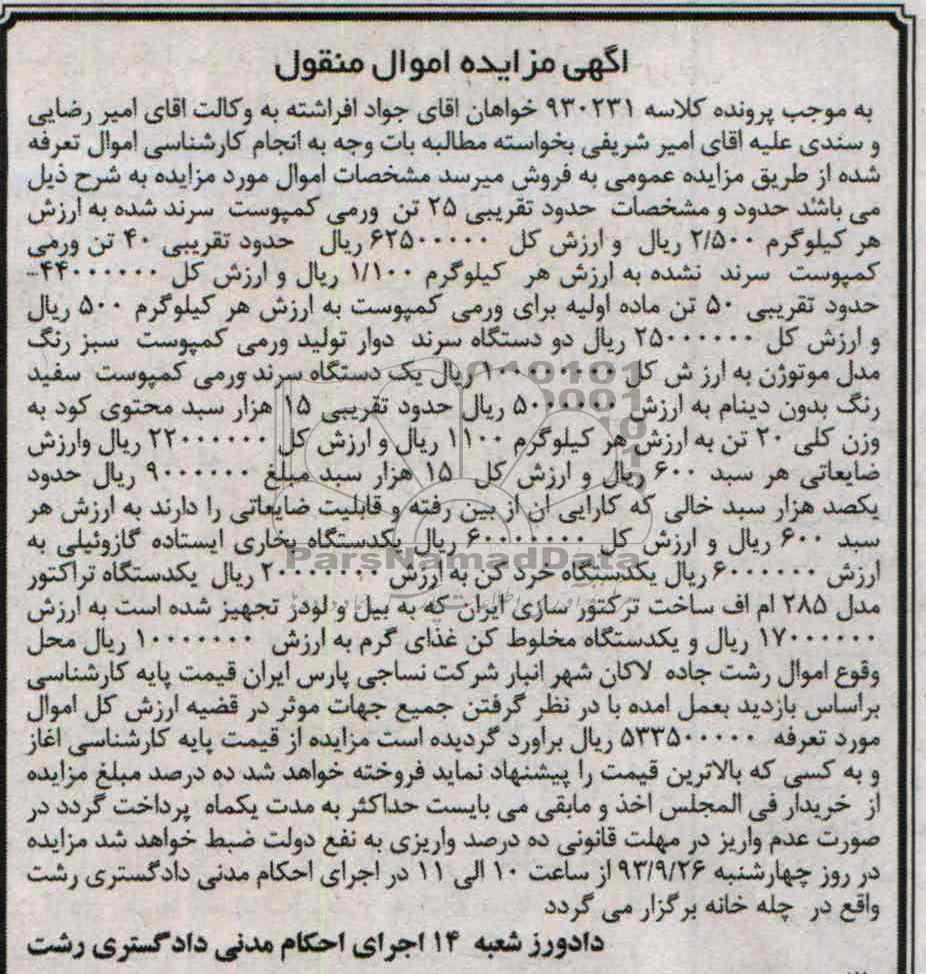 اگهی مزایده اموال منقول
به موجب پرونده کلاسه ۹۳۰۲۳۱ خواهان اقای جواد افراشته به وکالت اقای امیر رضایی
و سندی علیه اقای امیر شریفی بخواسته مطالبه بات وجه به انجام کارشناسی اموال تعرفه
شده از طریق مزایده عمومی به فروش میرسد مشخصات اموال مورد مزایده به شرح ذیل
می باشد حدود و مشخصات حدود تقریبی ۲۵ تن ورمی کمپوست سرند شده به ارزش
هر کیلوگرم ۲/۵۰۰ ریال و ارزش کل ۶۲۵۰۰۰۰۰ ریال حدود تقریبی ۴۰ تن ورمی
کمپوست سرند نشده به ارزش هر کیلوگرم ۱/۱۰۰ ریال و ارزش کل ۴۴۰۰۰۰۰۰-
حدود تقریبی ۵۰ تن ماده اولیه برای ورمی کمپوست به ارزش هر کیلوگرم ۵۰۰ ریال
و ارزش کل ۲۵۰۰۰۰۰۰ ریال دو دستگاه سرند دوار تولید ورمی کمپوست سبز رنگ
مدل موتوژن به ارز ش کل ۱۰۰۰۰۰۰۰۰ ریال یک دستگاه سرند ورمی کمپوست سفید
رنگ بدون دینام به ارزش ۵۰۰۰۰۰۰ ریال حدود تقریبی ۱۵ هزار سبد محتوی کود به
وزن کلی ۲۰ تن به ارزش هر کیلوگرم ۱۱۰۰ ریال و ارزش کل ۲۲۰۰۰۰۰۰ ریال وارزش
ضایعاتی هر سبد ۶۰۰ ریال و ارزش کل ۱۵ هزار سبد مبلغ ۹۰۰۰۰۰۰ ریال حدود
یکصد هزار سبد خالی که کارایی ان از بین رفته و قابلیت ضایعاتی را دارند به ارزش هر
سبد ۶۰۰ ریال و ارزش کل ۶۰۰۰۰۰۰۰ ریال یکدستگاه بخاری ایستاده گازوئیلی به
ارزش ۶۰۰۰۰۰۰ ریال یکدستگاه خرد کن به ارزش ۲۰۰۰۰۰۰۰ ریال یکدستگاه تراکتور
مدل ۲۸۵ ام اف ساخت ترکتور سازی ایران که به بیل و لودر تجهیز شده است به ارزش
۱۷۰۰۰۰۰۰ ریال و یکدستگاه مخلوط کن غذای گرم به ارزش ۱۰۰۰۰۰۰۰ ریال محل
وقوع اموال رشت جاده لاکان شهر انبار شرکت نساجی پارس ایران قیمت پایه کارشناسی
براساس بازدید بعمل امده با در نظر گرفتن جمیع جهات موثر در قضیه ارزش کل اموال
مورد تعرفه ۵۳۳۵۰۰۰۰۰ ریال براورد گردیده است مزایده از قیمت پایه کارشناسی اغاز
و به کسی که بالاترین قیمت را پیشنهاد نماید فروخته خواهد شد ده درصد مبلغ مزایده
از خریدار فی المجلس اخذ و مابقی می بایست حداکثر به مدت یکماه پرداخت گردد در
صورت عدم واریز در مهلت قانونی ده درصد واریزی به نفع دولت ضبط خواهد شد مزایده
در روز چهارشنبه ۹۳/۹/۲۶ از ساعت ۱۰ الی ۱۱ در اجرای احکام مدنی دادگستری رشت
واقع در چله خانه برگزار می گردد
دادورز شعبه ۱۴ اجرای احکام مدنی دادگستری رشت
ParsNamadData